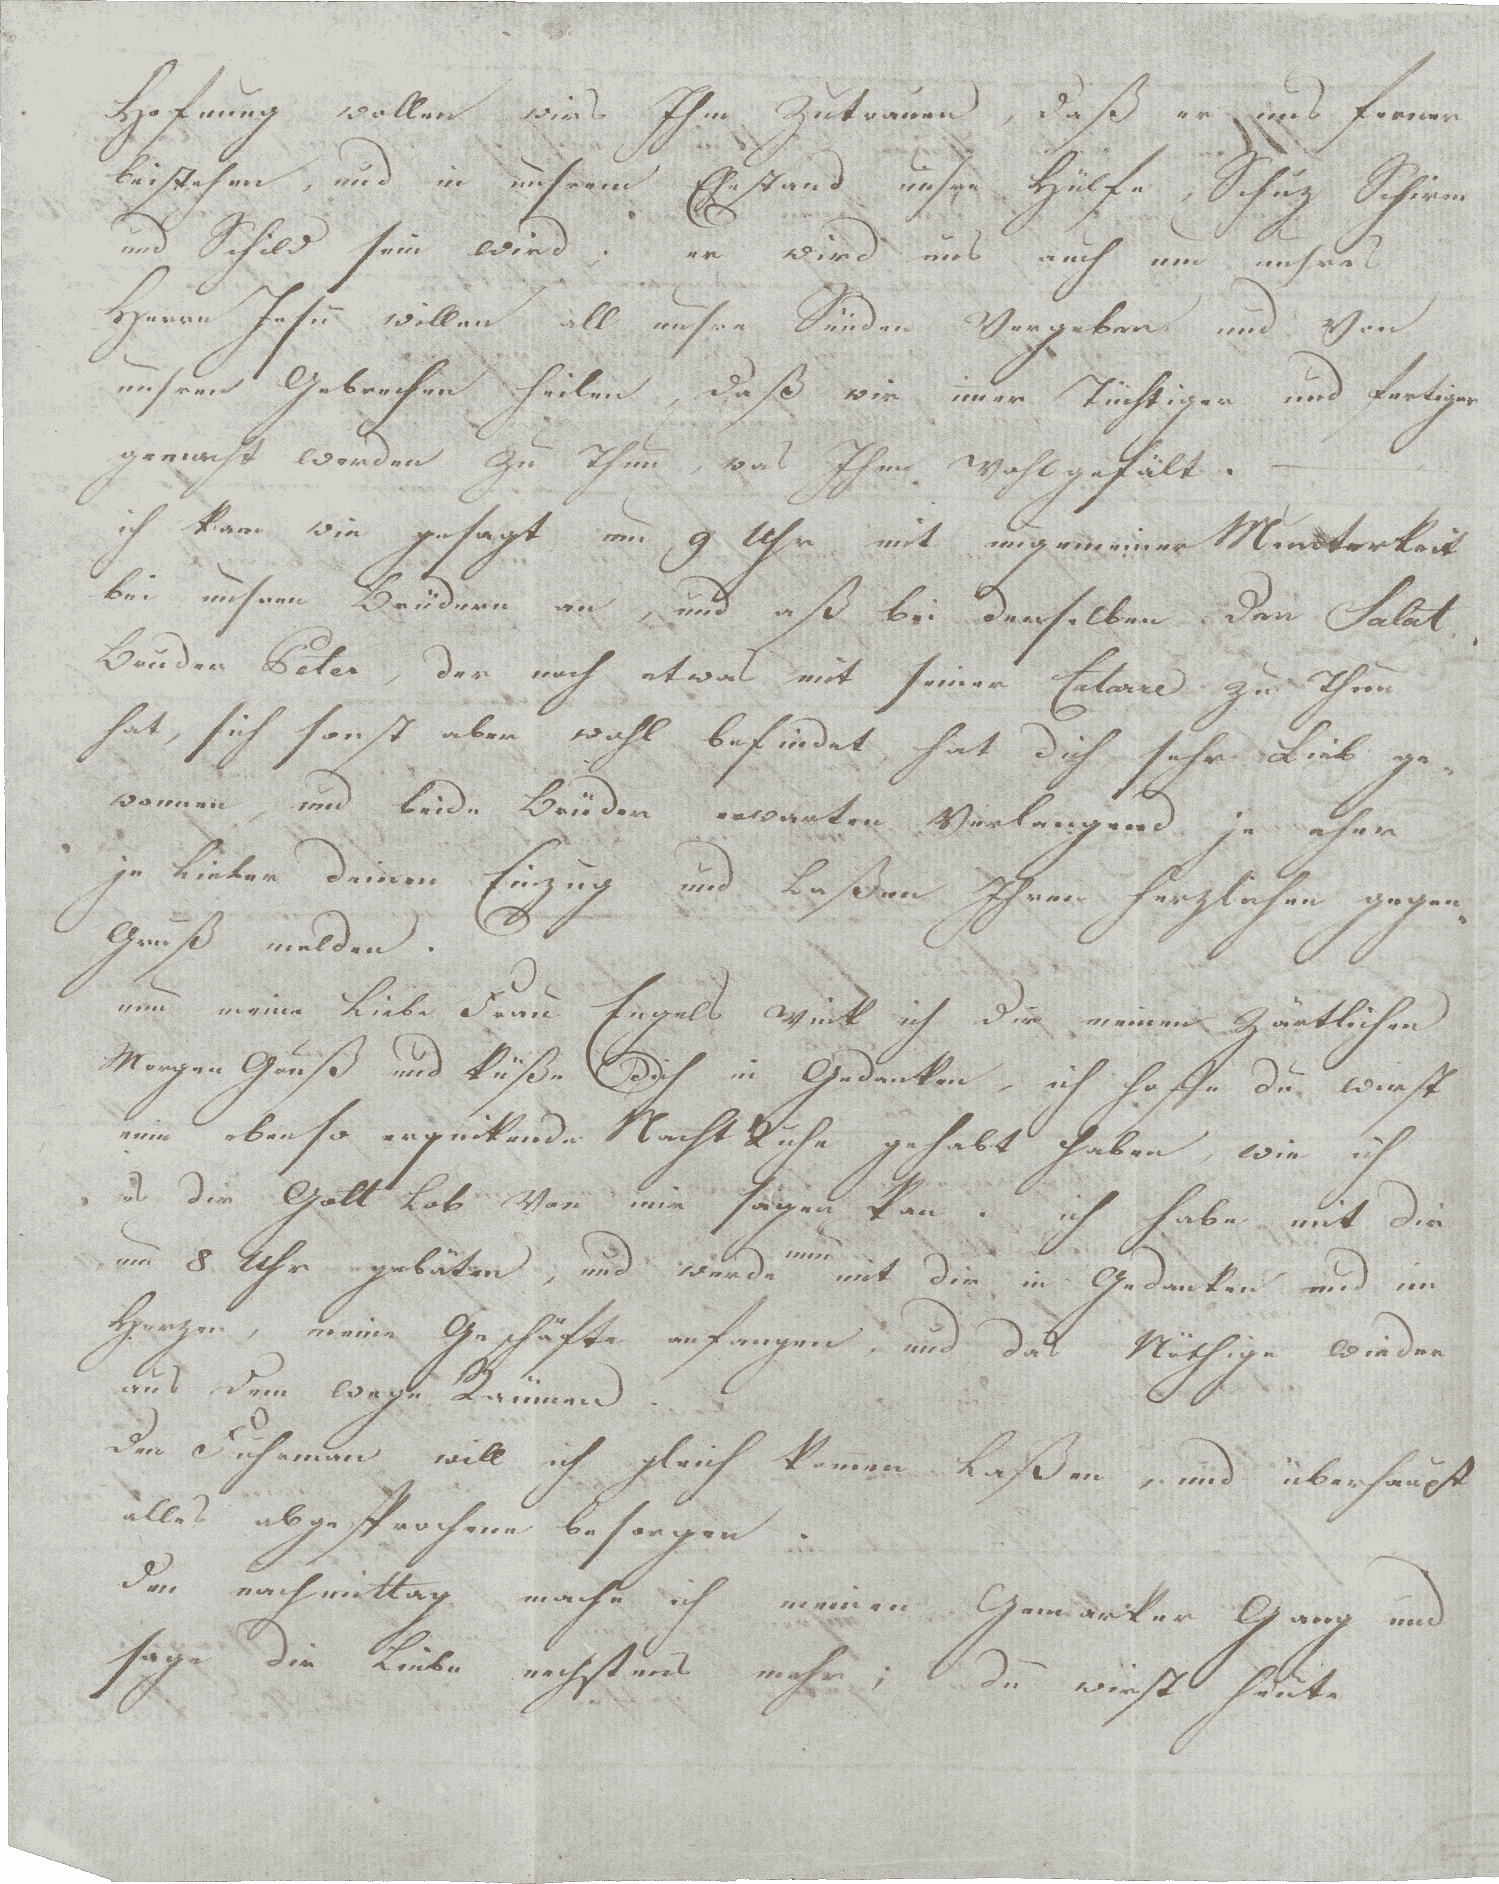 Hofnung wollen wirs Ihm Zutrauen, daß er uns ferner
beistehen, und in unsrem Ehestand unsre Hülfe, Schuz Schirm
und Schild sein wird; er wird uns auch um unsres
Herrn Jesu willen all unsre Sünden Vergeben und Von
unsren Gebrechen heilen, daß wir imer Tüchtiger und fertiger
gemacht werden zu Thun, was Ihm Wohlgefält. —
ich kam wie gesagt um 9 Uhr mit ungemeiner Munterkeit
bei unsren Brüdern an, und aß bei denselben den Salat.
Bruder Peter, der noch etwas mit seiner Catarre zu Thun
hat, sich sonst aber wohl befindet, hat dich sehr Lieb ge-
wonnen, und beide Brüder erwarten Verlangend je eher
je Lieber deinen Einzug und Laßen Ihren herzlichen gegen-
Gruß melden.
nun meine Liebe Frau Engels Wink ich dir meinen Zärtlichen
Morgen Gruß und küße dich in Gedanken, ich hoffe du wirst
eine ebenso erquikende Nacht Ruhe gehabt haben, wie ich
es dir Gott Lob Von mir sagen kan. ich habe mit dir
um 8 Uhr gebäten, und werde nun mit dir in Gedanken und im
Herzen, meine Geschäfte anfangen, und das Nöthige wieder
aus dem Wege Räumen.
Den Fuhrman will ich gleich komen Laßen, und überhaupt
alles abgesprochene besorgen.
den nachmittag mache ich meinen Gemarker Gang und
sage dir Liebe nechstens mehr; du wirst heute